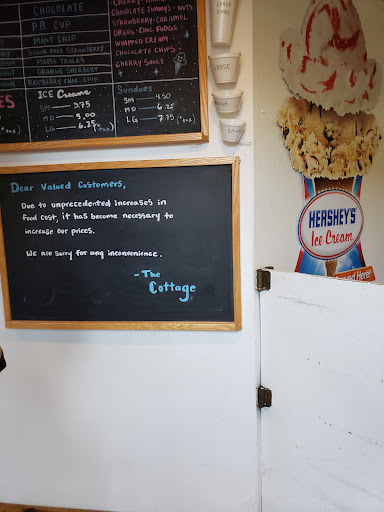 CHOCOLATE
P.B. CUP
MINT CHIP
SUGAR FREE STRAWBERRY
MOOSE TRACKS
ORANGE SHERBERT
RASPBERRY CHOC. CHIP
CHOCOLATE JIMMYS • NUTS
STRAWBERRY • CARAMEL
OREOS • CHOC. FUDGE
WHIPPED CREAM
CHOCOLATE CHIPS
CHERRY SAUCE
ICE Cream
SM 3.75
MD 5.00
LG 6.25 (+tax)
Sundaes
SM 4.50
MD 6.25
LG 7.75 (+tax)
LARGE
MEDIUM
SMALL
Dear Valued Customers,
Due to unprecedented increases in
food cost, it has become necessary to
increase our prices.
We are sorry for any inconvenience.
- The
Cottage
HERSHEY'S
Ice Cream
Here!